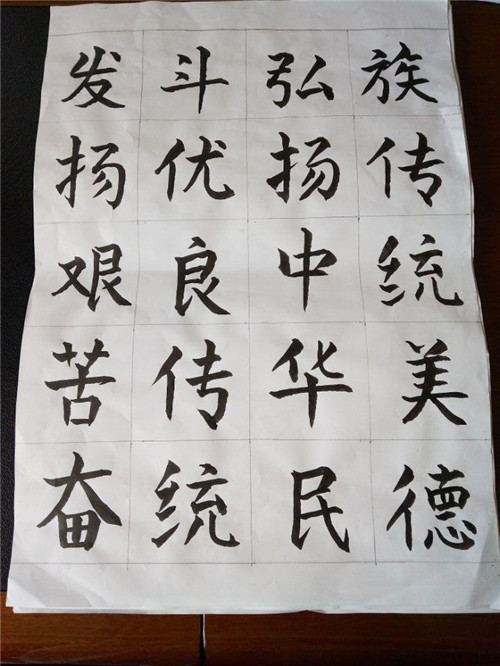 发扬艰苦奋
斗优良传统
弘扬中华民
族传统美德